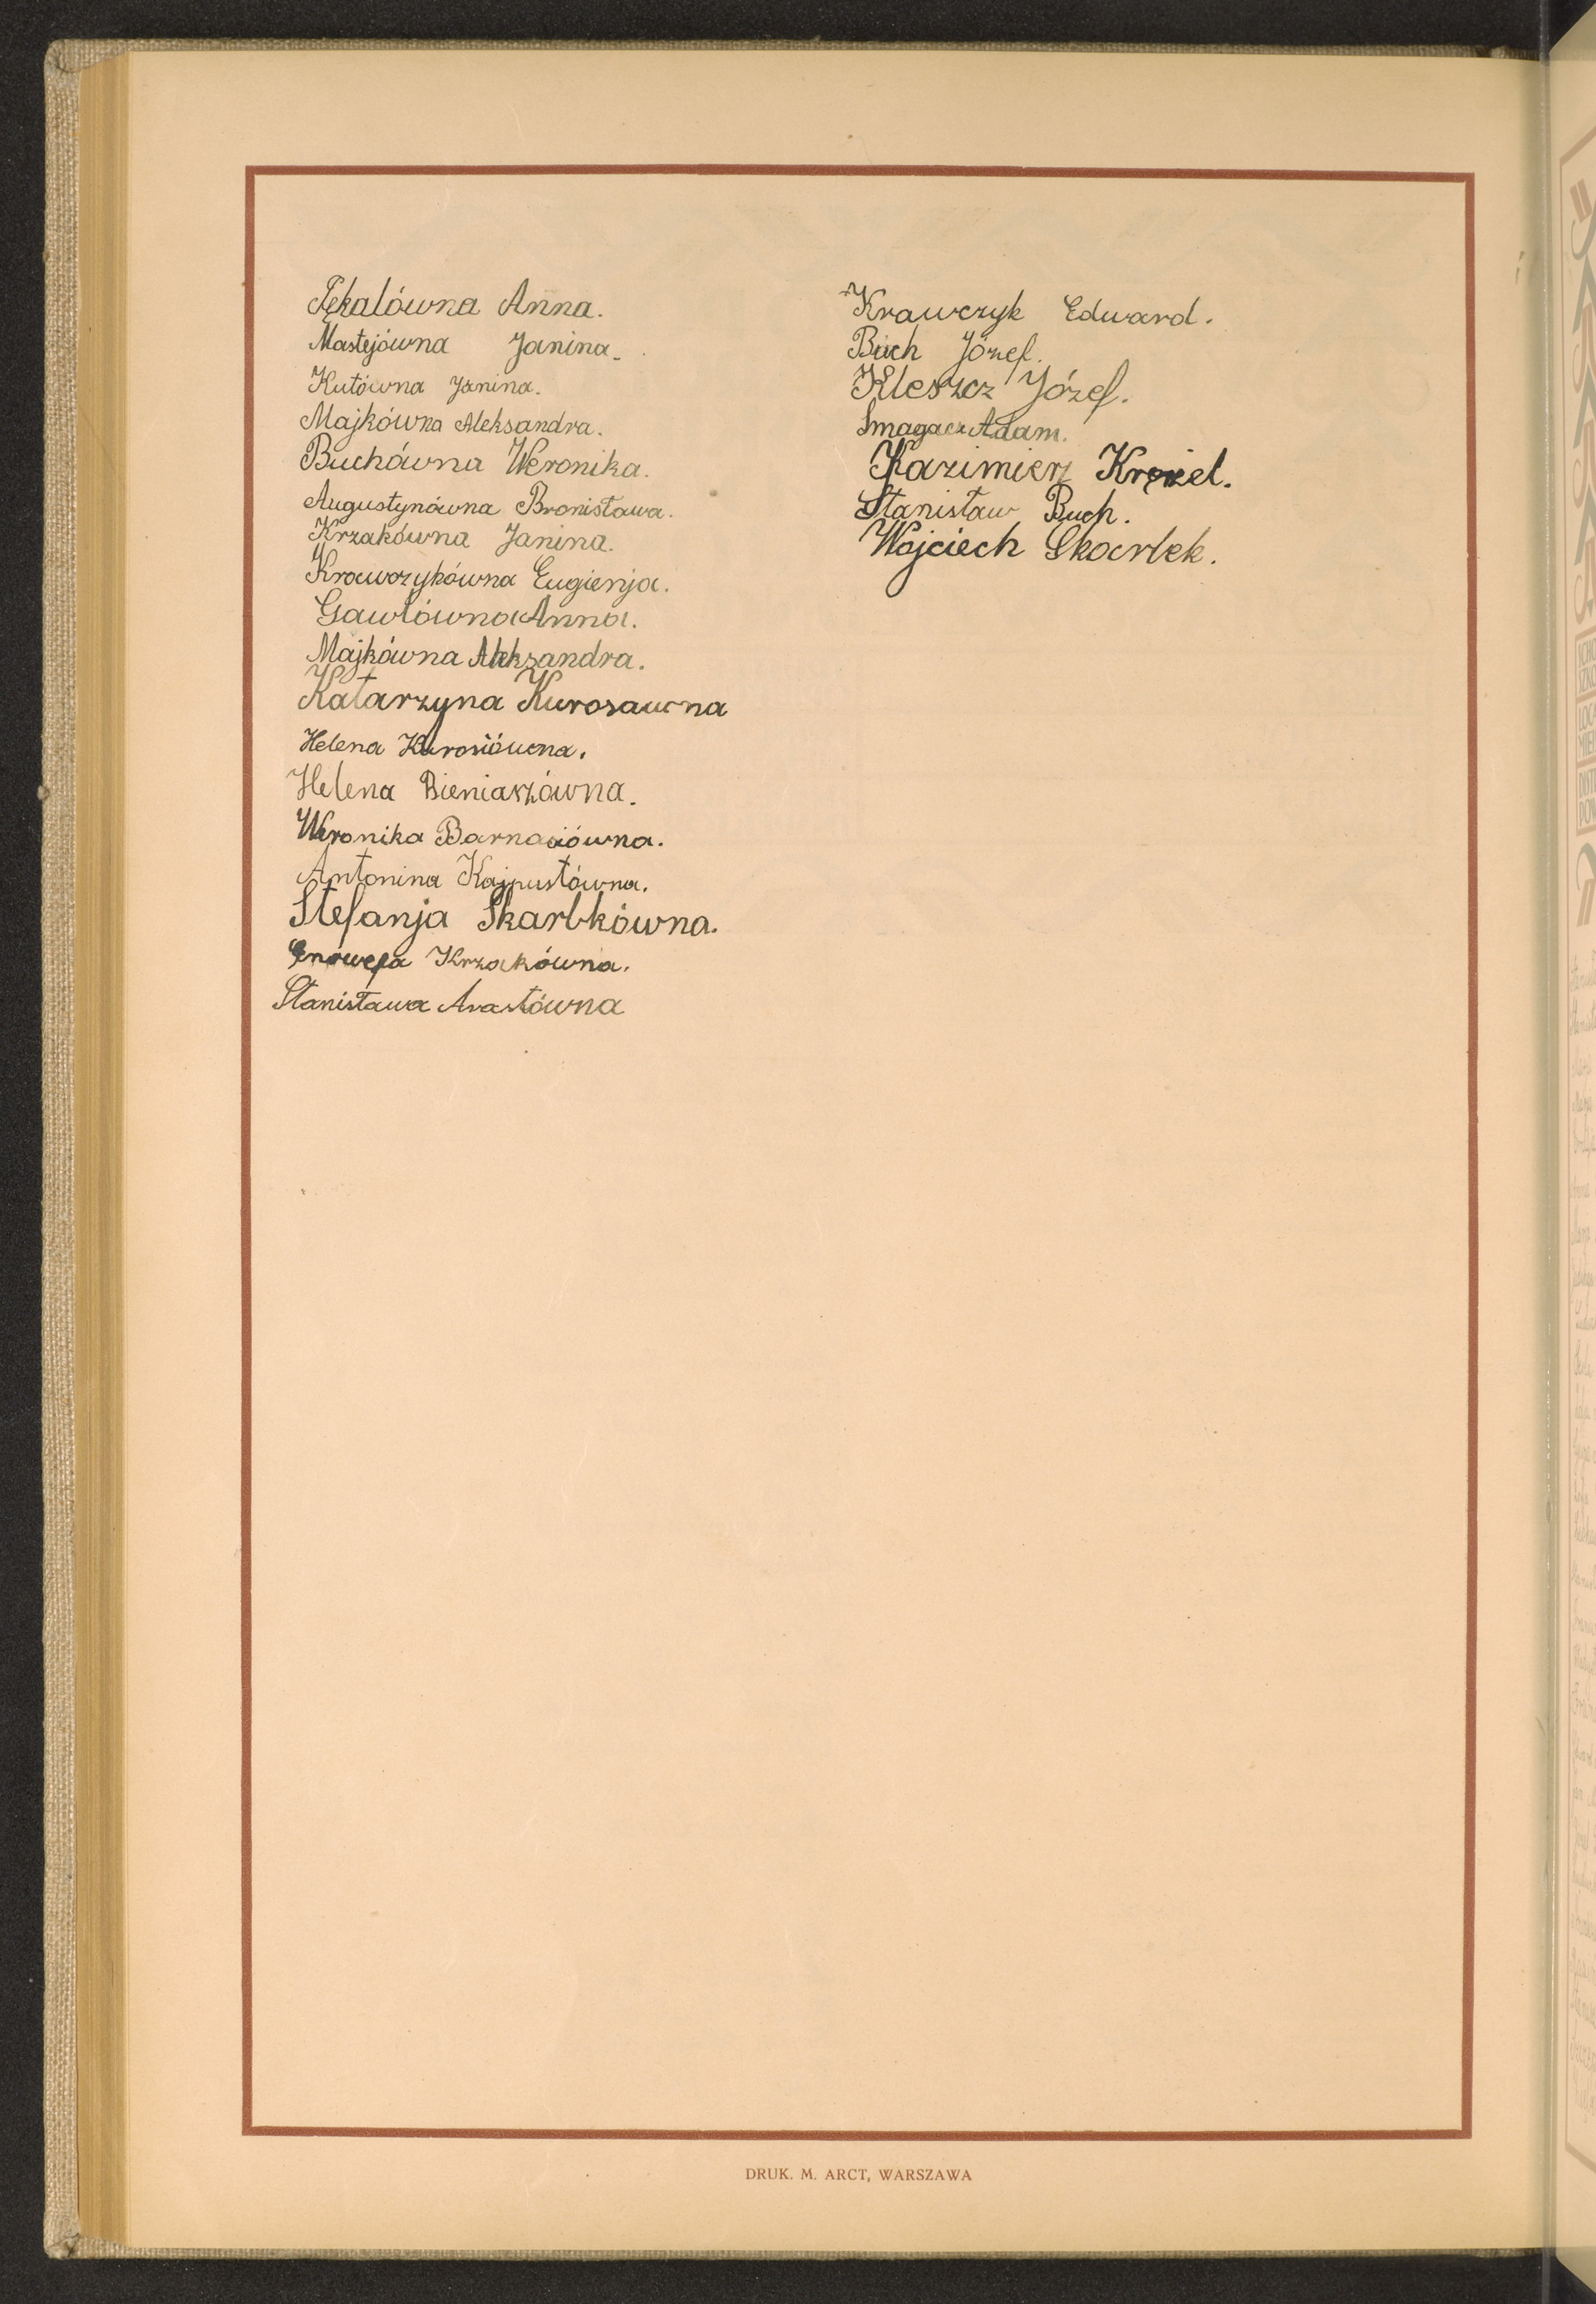 Tękalówna Anna.
Mastejówna Janina.
Kutówna Janina.
Majkówna Aleksandra.
Buchówna Weronika.
Augustynówna Bronisława.
Krzakówna Janina.
Krawczykówna Eugienja.
Gawłówna Anna.
Majkówna Aleksandra.
Katarzyna Kurosawna
Helena Kurosiówna.
Helena Bieniaszówna.
Weronika Barnasiówna.
Antonina Kajpustówna.
Stefanja Skarbkówna.
Genowefa Krzakówna.
Stanisława
Krawczyk Edward.
Buch Józef.
Kleszcz Józef.
Smagacz Adam.
Kazimierz
Stanisław Buch.
Wojciech Skarbek.
DRUK. M. ARCT, WARSZAWA